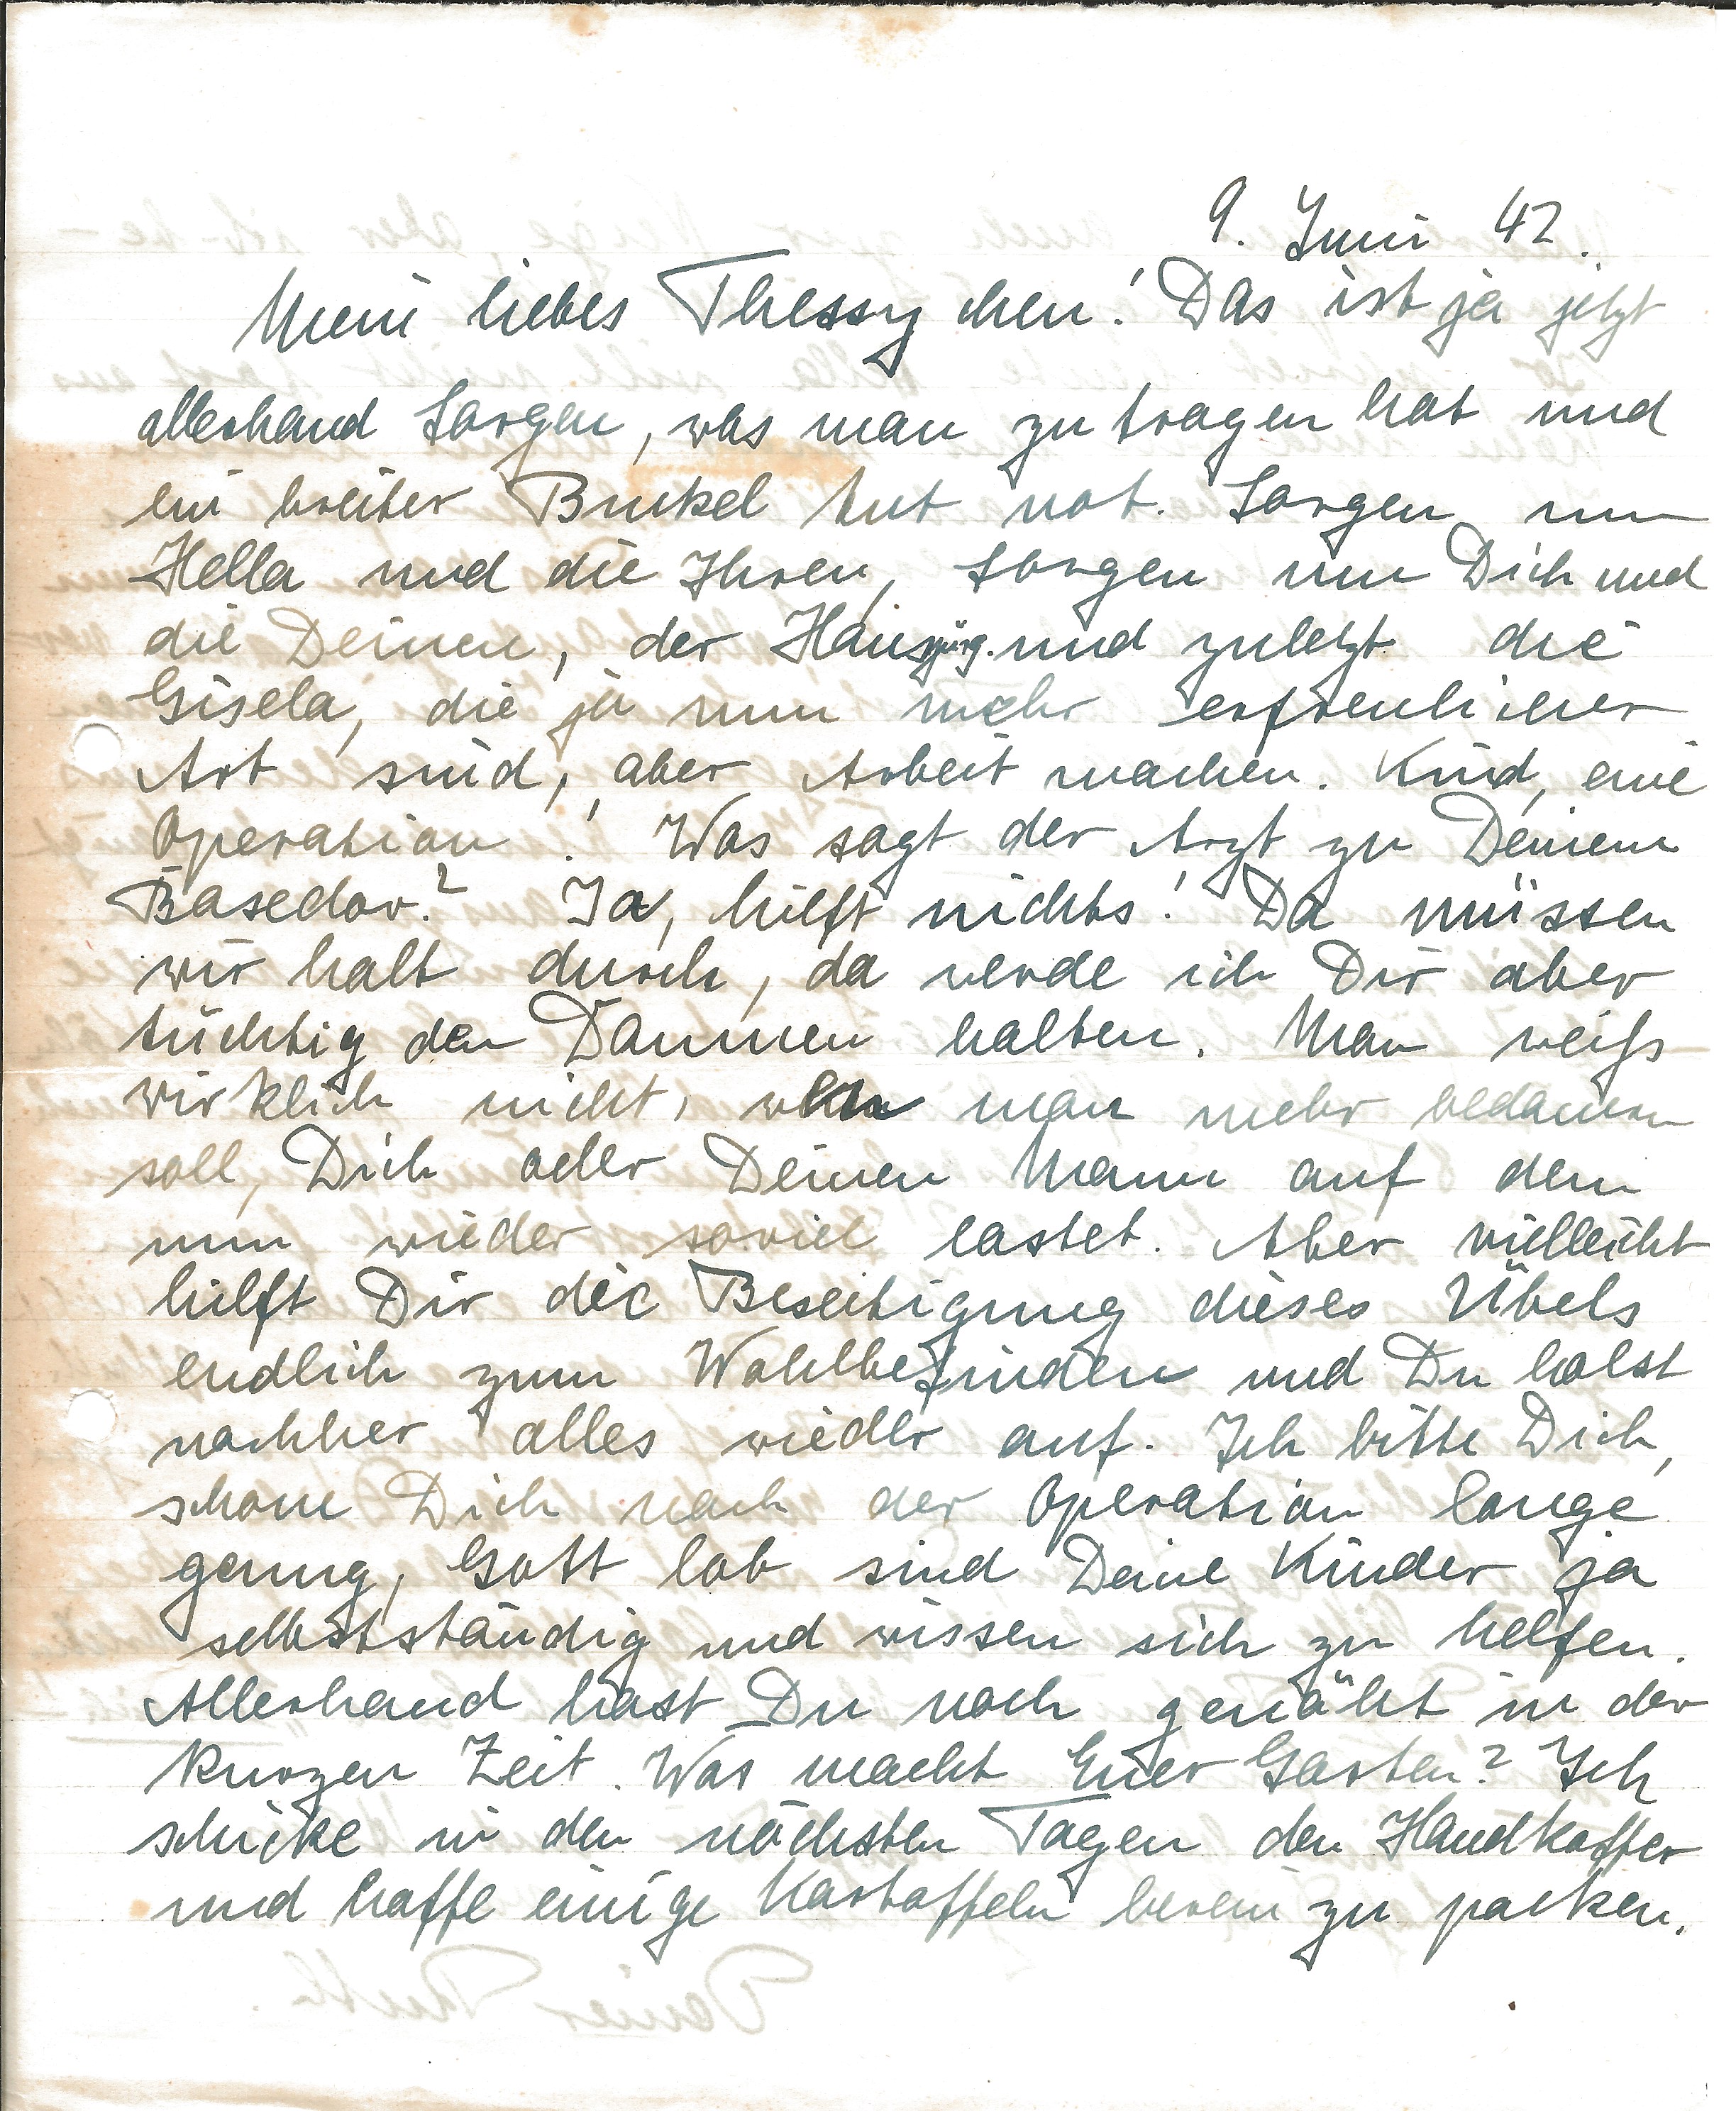 9. Juni 42.
Mein liebes Thessychen! Das ist ja jetzt
allerhand Sorgen, was man zu tragen hat und
ein breiter Bukel tut not. Sorgen um
Hella und die Ihren, Sorgen um Dich und
die Deinen, der Hansjürg. und zuletzt die
Gisela, die ja nun mehr erfreulicher
Art sind, aber Arbeit machen. Kind, eine
Operation! Was sagt der Arzt zu Deinem
Basedov? Ja, hilft nichts! Da müssen
wir halt durch, da werde ich Dir aber
tüchtig den Daumen halten. Man weiß
wirklich nicht, wen man mehr bedauern
soll, Dich oder Deinen Mann auf dem
nun wieder soviel lastet. Aber vielleicht
hilft Dir die Beseitigung dieses Übels
endlich zum Wohlbefinden und Du holst
nachher alles wieder auf. Ich bitte Dich,
schone Dich nach der Operation lange
genug, Gott lob sind Deine Kinder ja
selbstständig und wissen sich zu helfen.
Allerhand hast Du noch genäht in der
kurzen Zeit. Was macht Euer Garten? Ich
schicke in den nächsten Tagen den Handkoffer
und hoffe einige Kartoffeln herein zu packen.